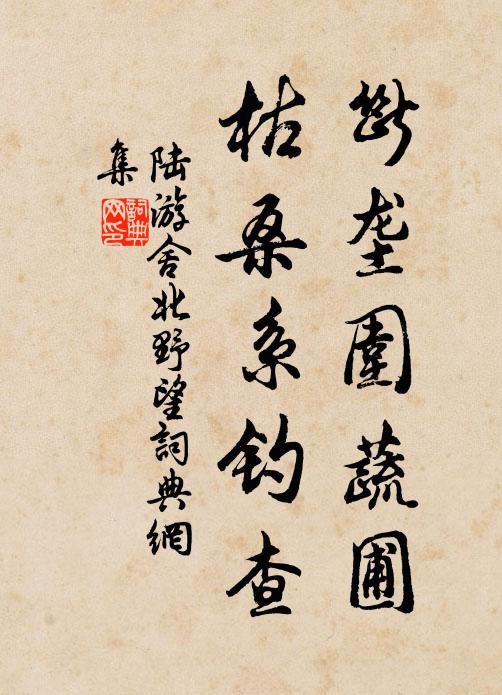 断垄围蔬圃
枯桑系钓查
陆游舍北野望词典網
集
詞典網印